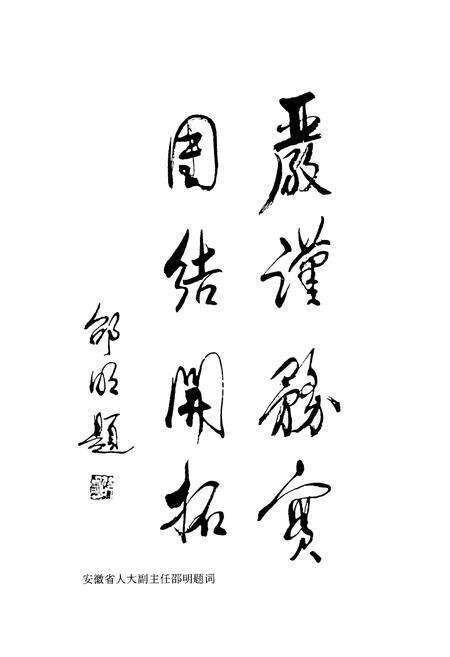 嚴謹務實
團結開拓
邵明題
安徽省人大副主任邵明题词